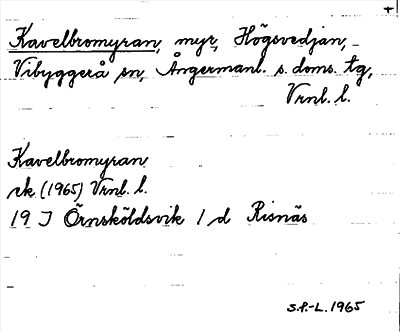 Kavelbromyran, myr, Högsvedjan,
Vibyggerå sn, Ångermanl. s. doms. tg,
Vrnl. l.
Kavelbromyran
ek (1965) Vrnl. l.
19 J Örnsköldsvik 1 d Risnäs
S.P.-L. 1965